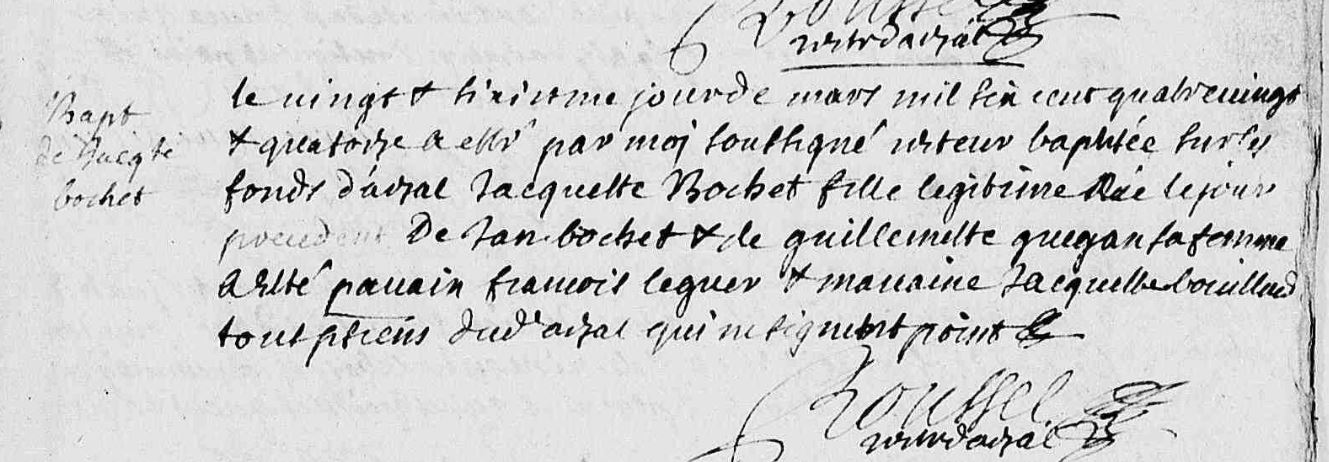 Roussel
rectr d'arzal
Bapt
de Jacqte
bochet
le vingt & sixiesme jour de mars mil six cent quatre vingt
& quatorze a esté par moj soussigné recteur baptisée sur les
fonds d'arzal Jacquette Bochet fille legitime née le jour
precedent De Jan bochet & de guillemette quegan sa femme
a esté parain francois leguer & maraine Jacquette bouillard
tout pnts dud' arzal qui ne signent point
Roussel
rectr d'arzal